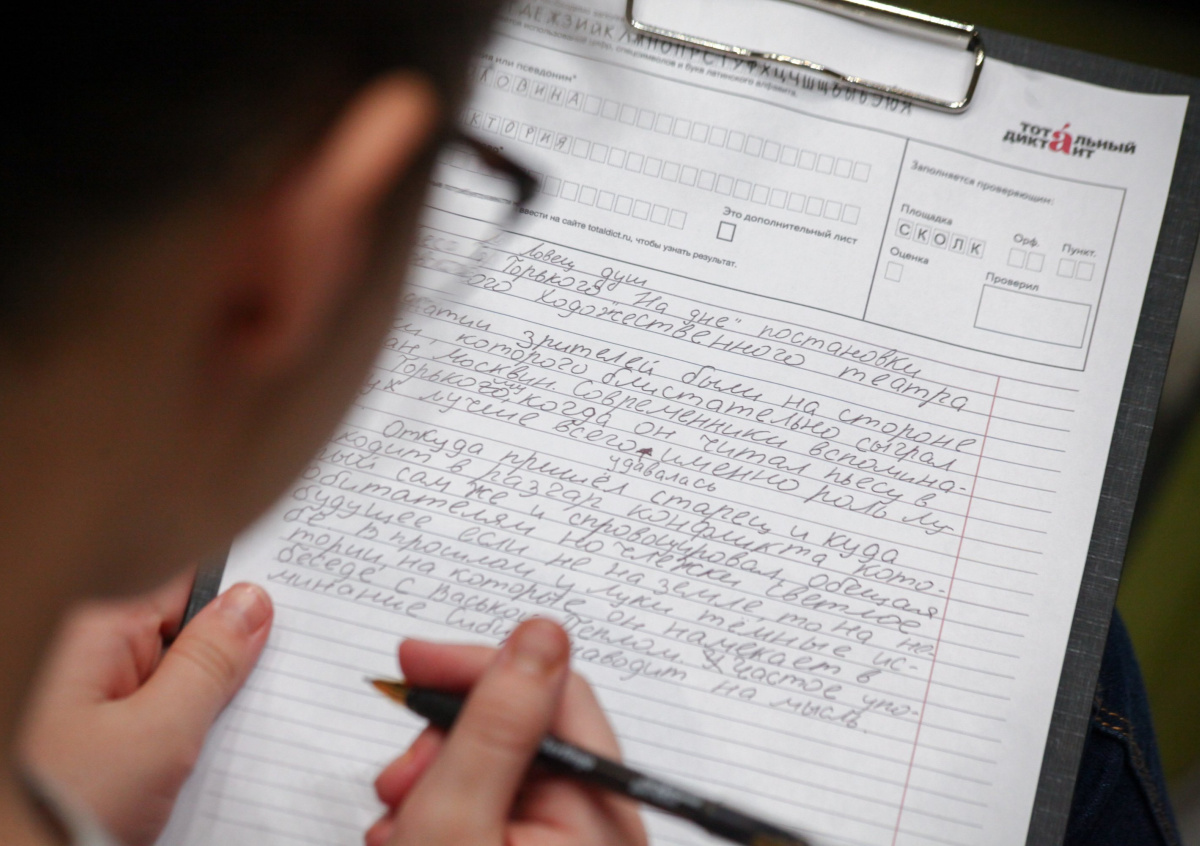 ДЕЖЗИЙКЛМНОПРСТУФХЦЧШЩЪЫЬЭЮЯ
спецсимволов и букв латинского алфавита.
или псевдоним*
ЛОВИНА
КТОРИЯ
ввести на сайте totaldict.ru, чтобы узнать результат.
Это дополнительный лист
тотальный
диктант
Заполняется проверяющим:
Площадка
СКОЛК
Орф.
Пункт.
Оценка
Проверил
Ловец душ
Горького "На дне" постановки
ого Художественного театра
зрителей были на стороне
которого блистательно сыграл
москвин. Современники вспомина-
Горького, когда он читал пьесу в
лучше всего именно роль Лу-
удавалась
Откуда пришёл старец и куда
ходит в разгар конфликта кото-
рый сам же и спровоцировал, обещая
обитателям ночлежки светлое
будущее если не на земле то на не-
бе. В прошлом у Луки тёмные ис-
тории, на которые он намекает в
беседе с Васькой Пеплом. А частое упо-
минание наводит на мысль.